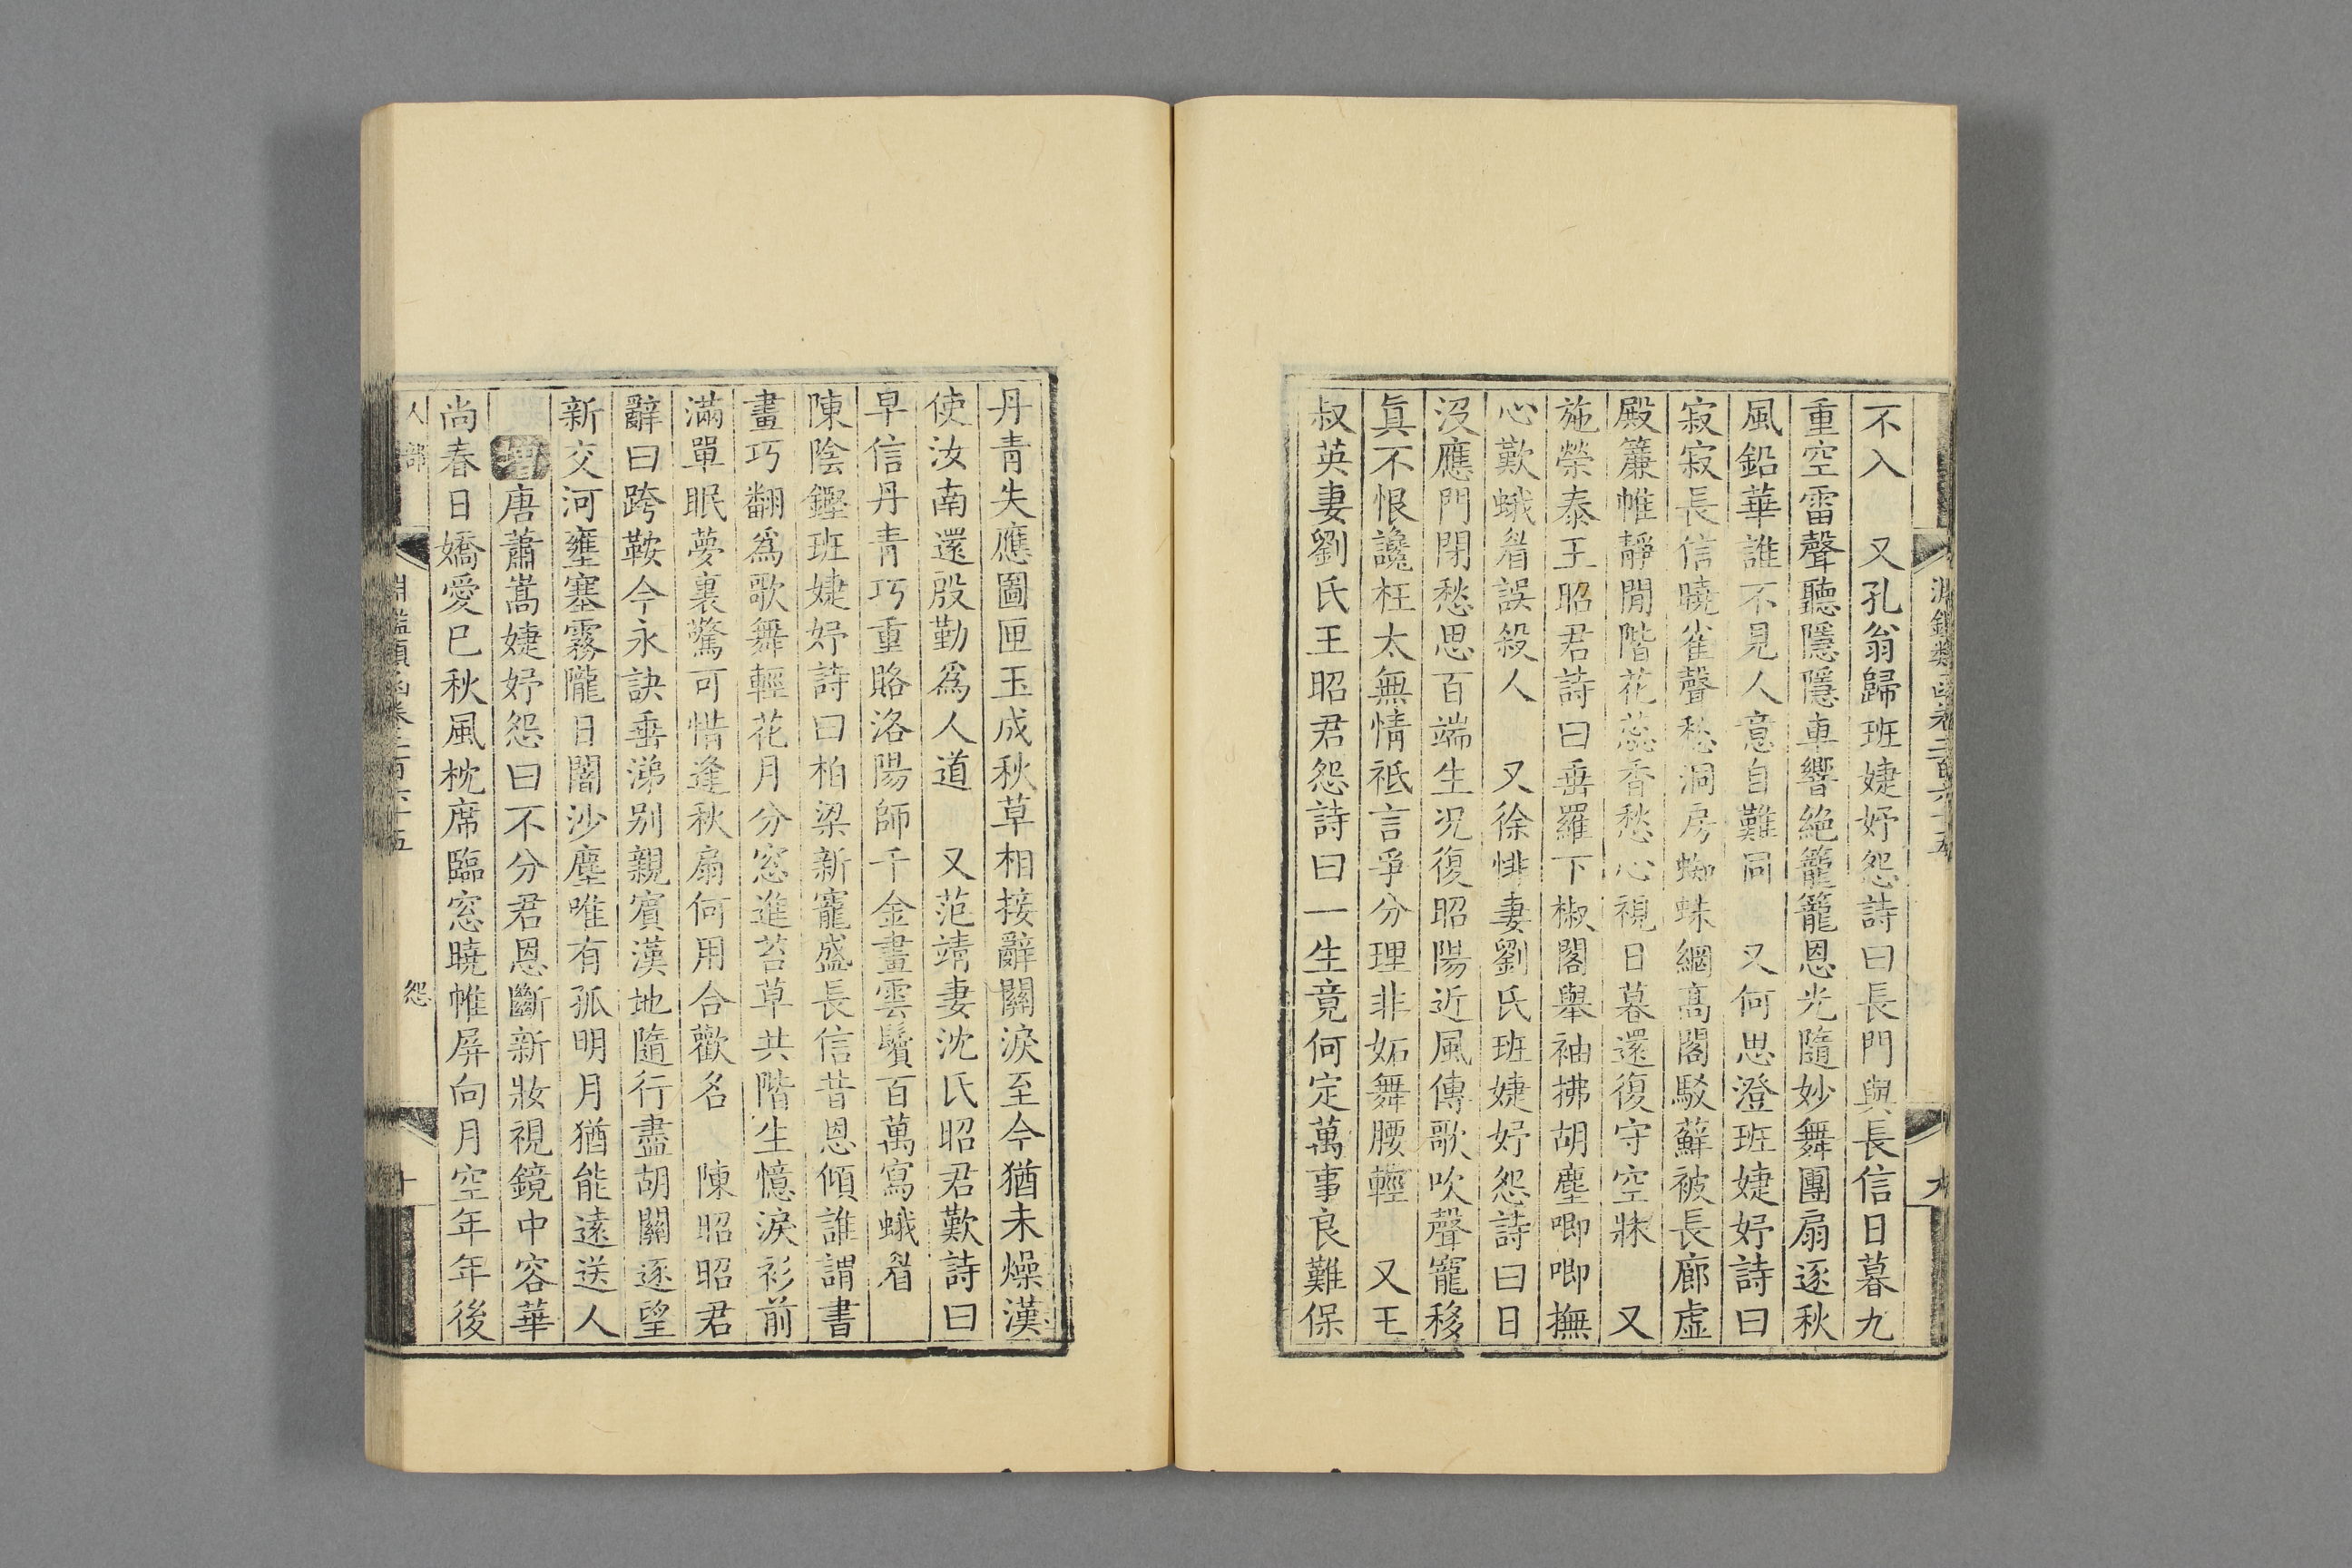 不入　又孔翁歸班婕妤怨詩曰長門與長信日暮九
重空雷聲聽隱隱車響絶籠籠恩光隨妙舞團扇逐秋
風鉛華誰不見人意自難同　又何思澄班婕妤詩曰
寂寂長信曉雀聲愁洞房蜘蛛網高閣駁蘚被長廊虛
殿簾帷靜閒階花蕊香愁心視日暮還復守空牀　又
施榮泰王昭君詩曰垂羅下椒閣舉袖拂胡塵唧唧撫
心歎蛾眉誤殺人　又徐悱妻劉氏班婕妤怨詩曰日
沒應門閉愁思百端生況復昭陽近風傳歌吹聲寵移
眞不恨讒枉太無情祗言爭分理非妬舞腰輕　又王
叔英妻劉氏王昭君怨詩曰一生竟何定萬事良難保
丹青失應圖匣玉成秋草相接辭關淚至今猶未燥漢
使汝南還殷勤爲人道　又范靖妻沈氏昭君歎詩曰
早信丹青巧重賂洛陽師千金畫雲鬢百萬寫蛾眉
陳陰鏗班婕妤詩曰柏梁新寵盛長信昔恩傾誰謂書
畫巧翻爲歌舞輕花月分窓進苔草共階生憶淚衫前
滿單眠夢裏驚可惜逢秋扇何用合歡名　陳昭昭君
辭曰跨鞍今永訣垂涕别親賓漢地隨行盡胡關逐望
新交河壅塞霧隴日闇沙塵唯有孤明月猶能遠送人
增唐蕭嵩婕妤怨曰不分君恩斷新妝視鏡中容華
尚春日嬌愛巳秋風枕席臨窓曉帷屏向月空年年後
人部　淵鑑類函卷三百六十五　怨　十